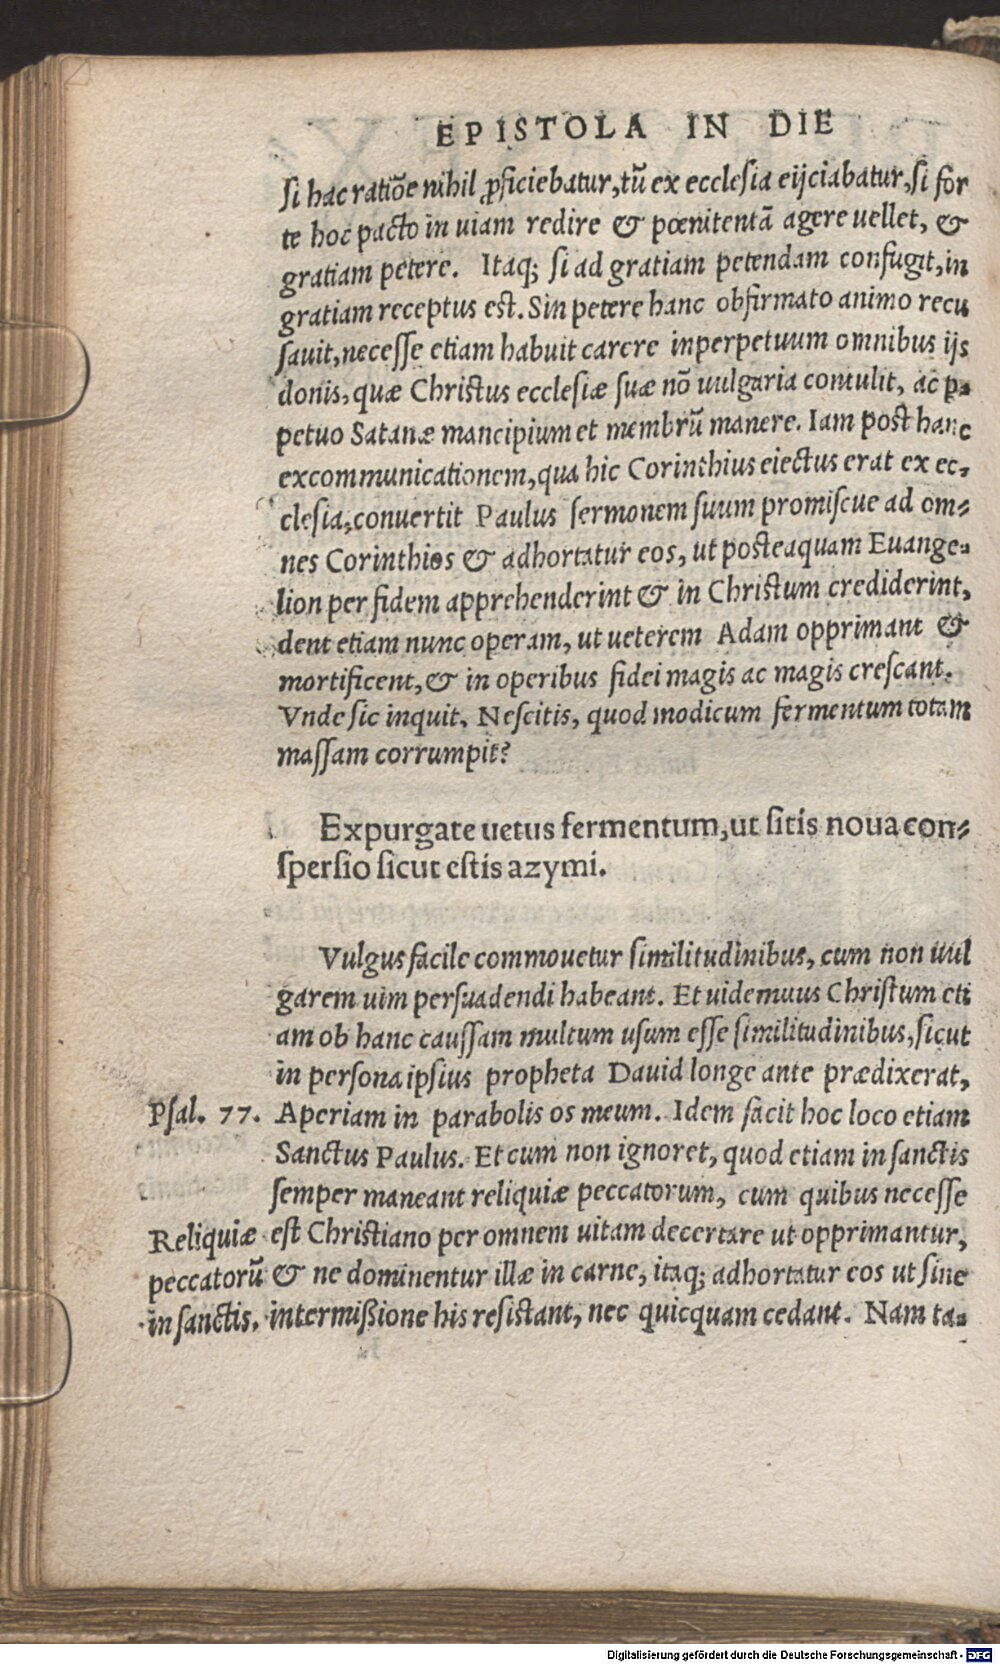 EPISTOLA IN DIE
Si hac ratiõe nihil ꝓficiebatur, tũ ex ecclesia eijciabatur, si for
te hoc pacto in uiam redire & pœnitentã agere uellet, &
gratiam petere. Itaq; si ad gratiam petendam confugit, in
gratiam receptus est. Sin petere hanc obfirmato animo recu
sauit, necesse etiam habuit carere inperpetuum omnibus ijs
donis, quæ Christus ecclesiæ suæ nõ uulgaria contulit, ac ꝑ-
petuo Satanæ mancipium et membrũ manere. Iam post hanc
excommunicationem, qua hic Corinthius eiectus erat ex ec-
clesia, conuertit Paulus sermonem suum promiscue ad om-
nes Corinthios & adhortatur eos, ut posteaquam Euange-
lion per fidem apprehenderint & in Christum crediderint,
dent etiam nunc operam, ut ueterem Adam opprimant &
mortificent, & in operibus fidei magis ac magis crescant.
Vnde sic inquit. Nescitis, quod modicum fermentum totam
massam corrumpit?
Expurgate uetus fermentum, ut sitis noua con-
spersio sicut estis azymi.
Vulgus facile commouetur similitudinibus, cum non uul
garem uim persuadendi habeant. Et uidemuus Christum eti
am ob hanc caussam multum usum esse similitudinibus, sicut
in persona ipsius propheta Dauid longe ante prædixerat,
Psal. 77. Aperiam in parabolis os meum. Idem facit hoc loco etiam
Sanctus Paulus. Et cum non ignoret, quod etiam in sanctis
semper maneant reliquiæ peccatorum, cum quibus necesse
Reliquiæ est Christiano per omnem uitam decertare ut opprimantur,
peccatorũ & ne dominentur illæ in carne, itaq; adhortatur eos ut sine
in sanctis. intermißione his resistant, nec quicquam cedant. Nam ta-
Digitalisierung gefördert durch die Deutsche Forschungsgemeinschaft - DFG